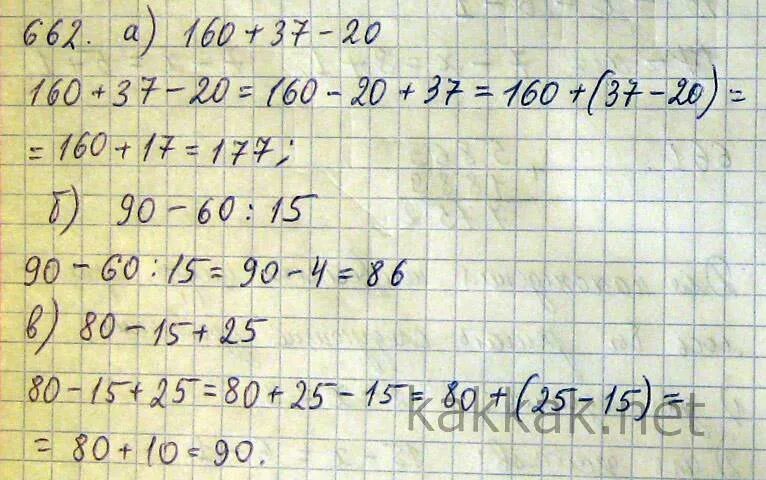 662. а) 160 + 37 - 20
160 + 37 - 20 = 160 - 20 + 37 = 160 + (37 - 20) =
= 160 + 17 = 177;
б) 90 - 60 : 15
90 - 60 : 15 = 90 - 4 = 86
в) 80 - 15 + 25
80 - 15 + 25 = 80 + 25 - 15 = 80 + (25 - 15) =
kakkak.net
= 80 + 10 = 90.